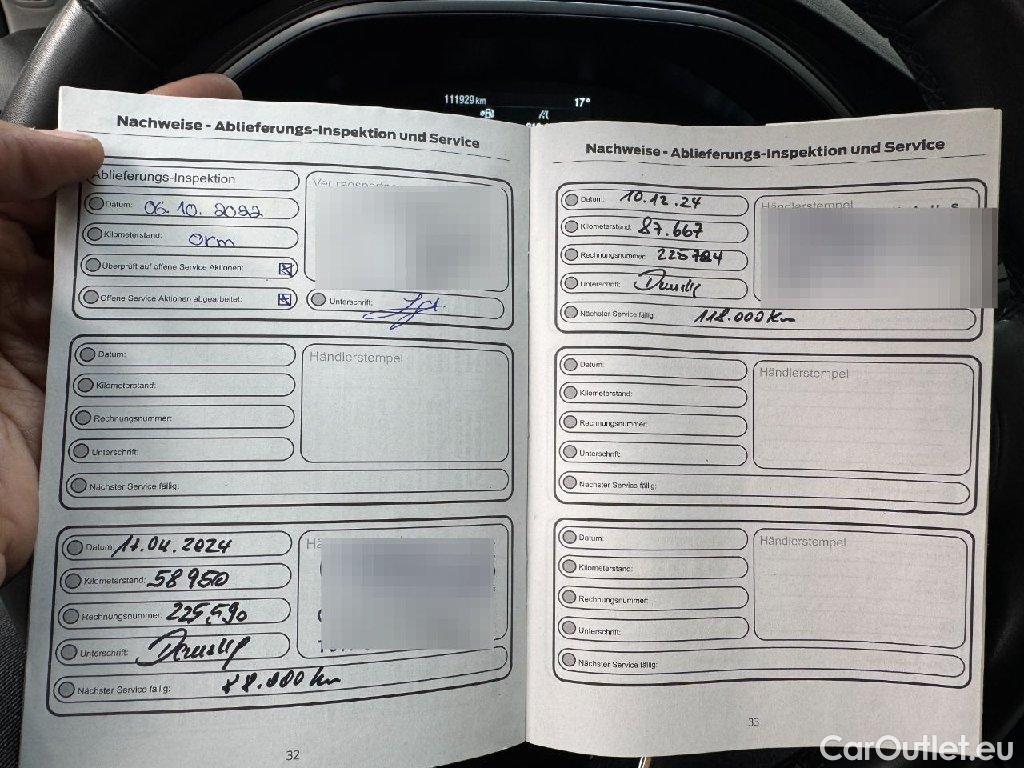 111929 km
17°
Nachweise - Ablieferungs-Inspektion und Service
Ablieferungs-Inspektion
Datum: 06.10.2022
Kilometerstand: 0km
Überprüft auf offene Service Aktionen:
Offene Service Aktionen abgearbeitet:
Unterschrift:
Datum:
Händlerstempel
Kilometerstand:
Rechnungsnummer:
Unterschrift:
Nächster Service fällig:
Datum: 17.04.2024
Kilometerstand: 58950
Rechnungsnummer: 225590
Unterschrift:
Nächster Service fällig: 88.000 km
32
Nachweise - Ablieferungs-Inspektion und Service
Datum: 10.12.24
Händlerstempel
Kilometerstand: 87.667
Rechnungsnummer: 225784
Unterschrift:
Nächster Service fällig: 118.000 km
Datum:
Händlerstempel
Kilometerstand:
Rechnungsnummer:
Unterschrift:
Nächster Service fällig:
Datum:
Händlerstempel
Kilometerstand:
Rechnungsnummer:
Unterschrift:
Nächster Service fällig:
33
CarOutlet.eu